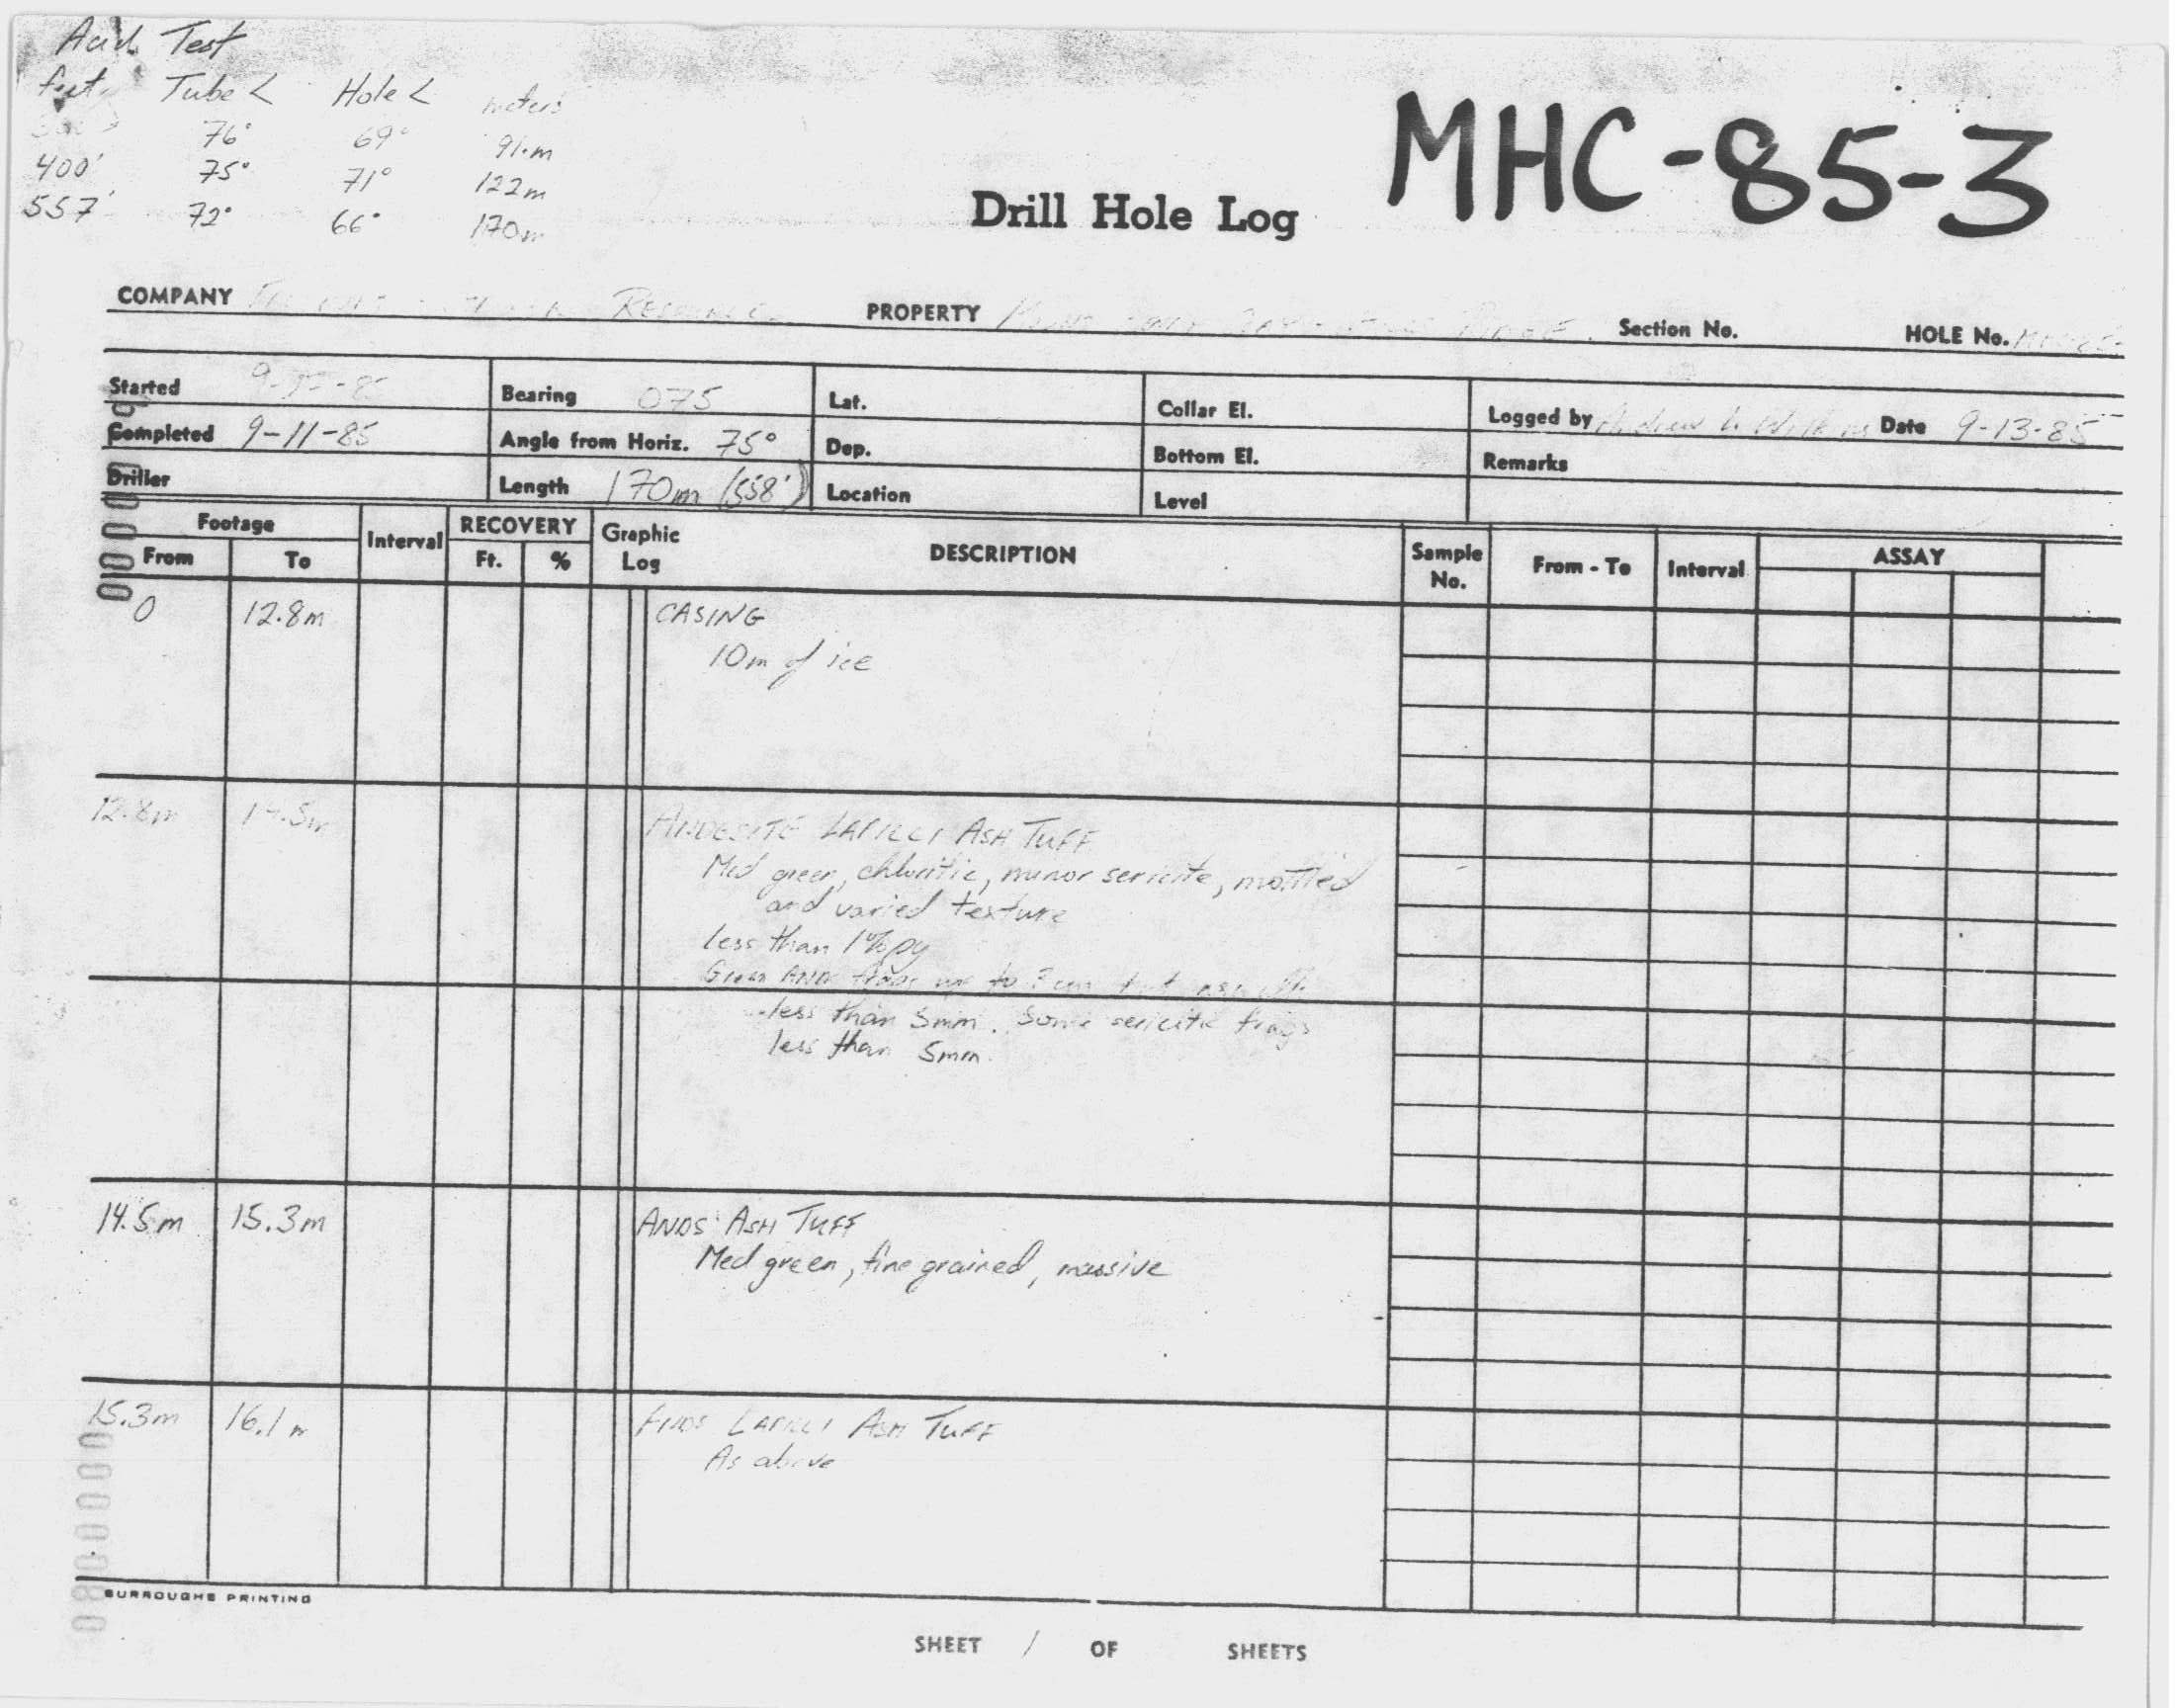 Acid Test
feet Tube < Hole < meters
76° 69° 91.m
400' 75° 71° 122m
557' 72° 66° 170m
MHC-85-3
Drill Hole Log
COMPANY RESOURCES PROPERTY Section No. HOLE No.
Started Bearing 075 Lat. Collar El. Logged by Andrew Date 9-13-85
Completed 9-11-85 Angle from Horiz. 75° Dep. Bottom El. Remarks
Driller Length 170m (558') Location Level
Footage Interval RECOVERY Graphic Log DESCRIPTION Sample No. From - To Interval ASSAY
From To Ft. %
0 12.8m CASING
10m of ice
12.8m ANDESITE LAPILLI ASH TUFF
Med green, chloritic, minor sericite, mottled
and varied texture
less than 1% py
Green AND frags up to
less than 5mm. Some sericitic frags
less than 5mm.
14.5m 15.3m ANDS ASH TUFF
Med green, fine grained, massive
15.3m 16.1m ANDS LAPILLI ASH TUFF
As above
BURROUGHS PRINTING
SHEET 1 OF SHEETS